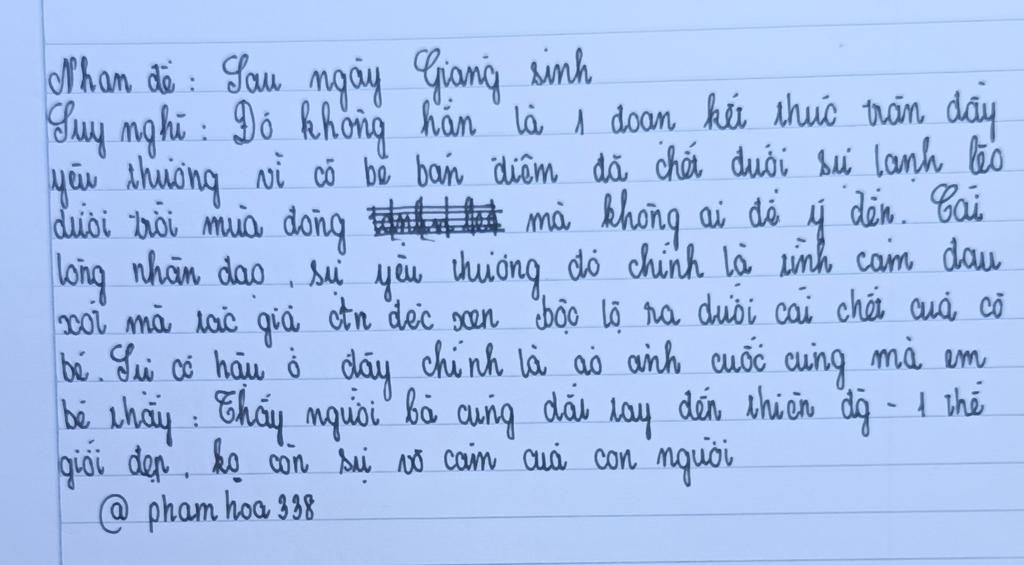 Nhan đề : Sau ngày Giáng sinh
Suy nghĩ : Đó không hẳn là 1 đoạn kết thúc tràn đầy
yêu thương vì cô bé bán diêm đã chết dưới sự lạnh lẽo
dưới trời mùa đông mà không ai để ý đến. Cái
lòng nhân đạo, sự yêu thương đó chính là tình cảm đau
xót mà tác giả đan xen bộc lộ ra dưới cái chết của cô
bé. Sự có hậu ở đây chính là ảo ảnh cuối cùng mà em
bé thấy : Thấy người bà cùng dắt tay đến thiên đg - 1 thế
giới đẹp, ko còn sự vô cảm của con người
@ phamhoa338